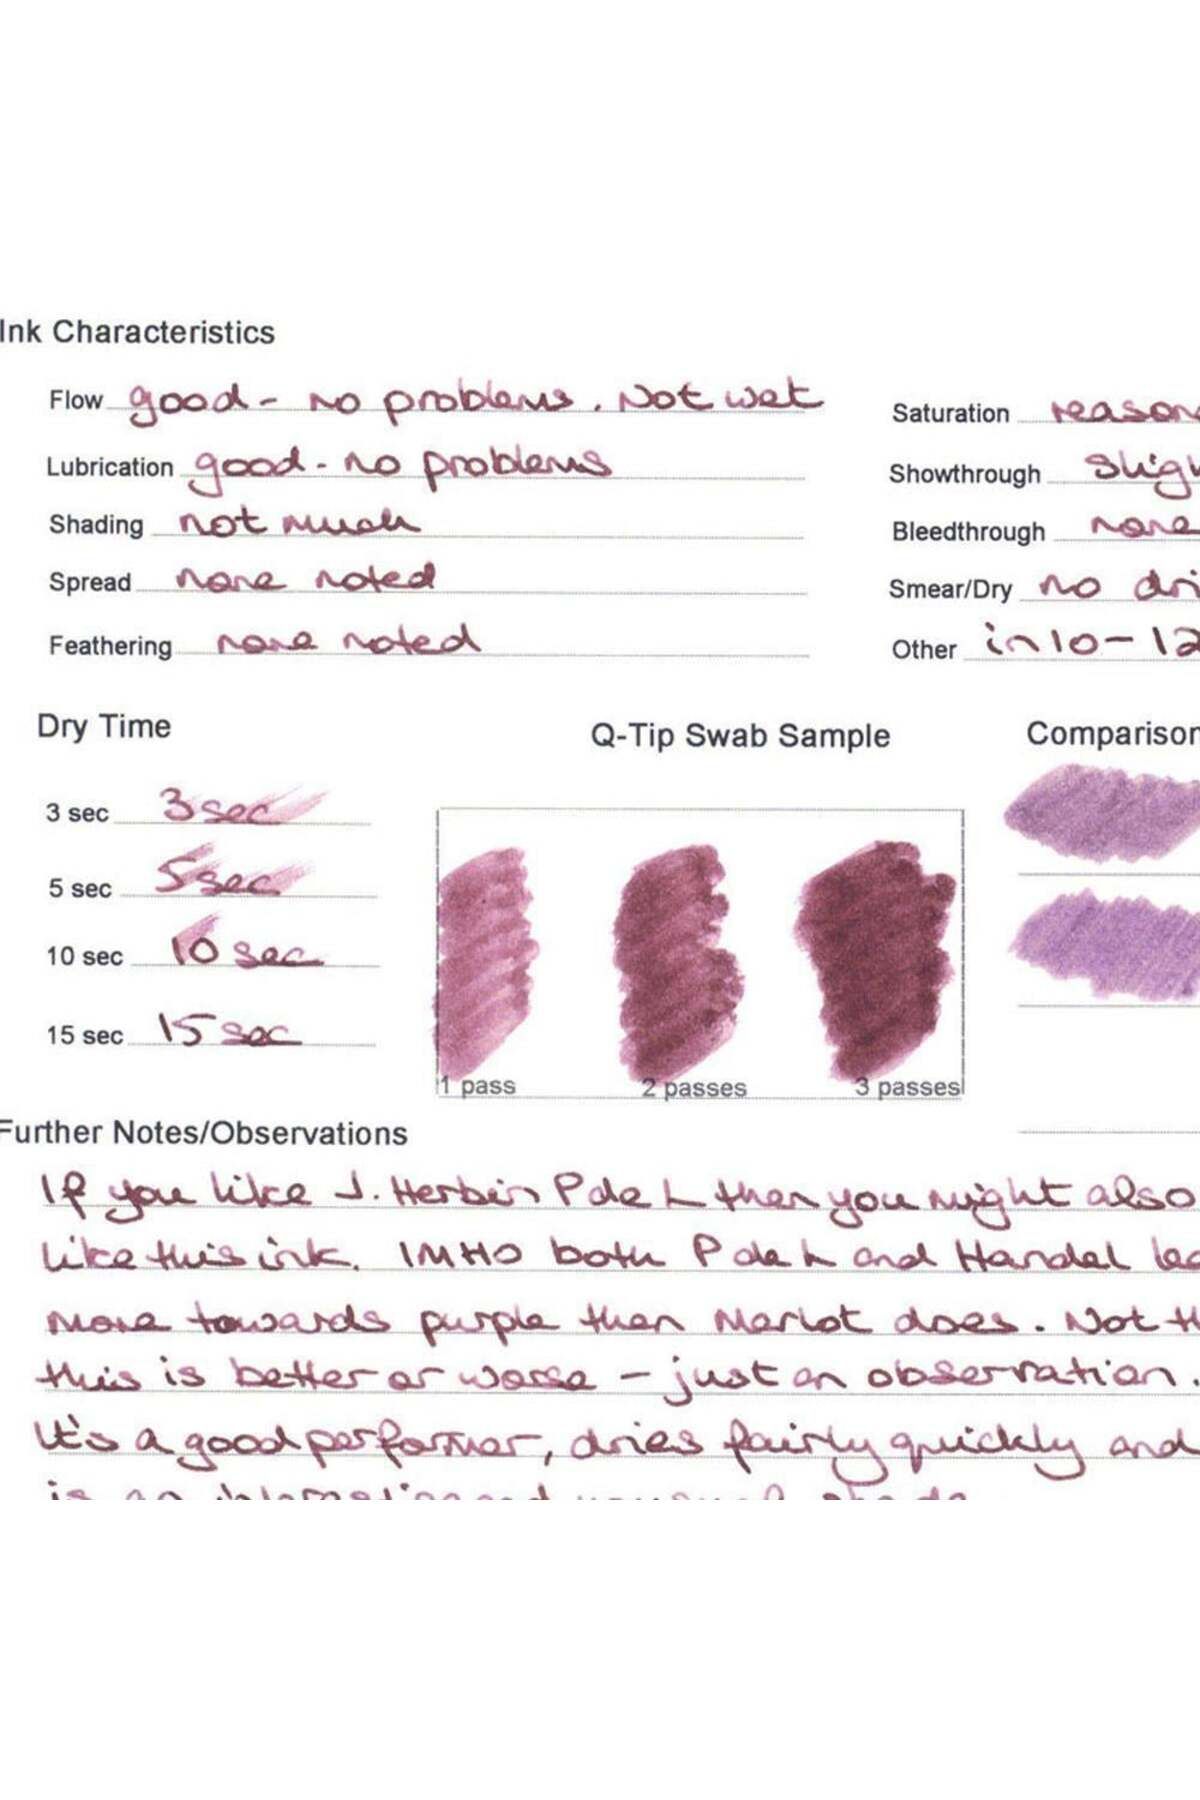 Ink Characteristics
Flow good - no problems. Not wet
Lubrication good - no problems
Shading not much
Spread none noted
Feathering none noted
Saturation reason
Showthrough sligh
Bleedthrough none
Smear/Dry no dri
Other in 10 - 12
Dry Time
3 sec 3 sec
5 sec 5 sec
10 sec 10 sec
15 sec 15 sec
Q-Tip Swab Sample
1 pass 2 passes 3 passes
Comparison
Further Notes/Observations
If you like J. Herbin P de L then you might also
like this ink. IMHO both P de L and Handel lea
more towards purple than Merlot does. Not th
this is better or worse - just an observation.
It's a good performer, dries fairly quickly and
is an interesting and unusual shade